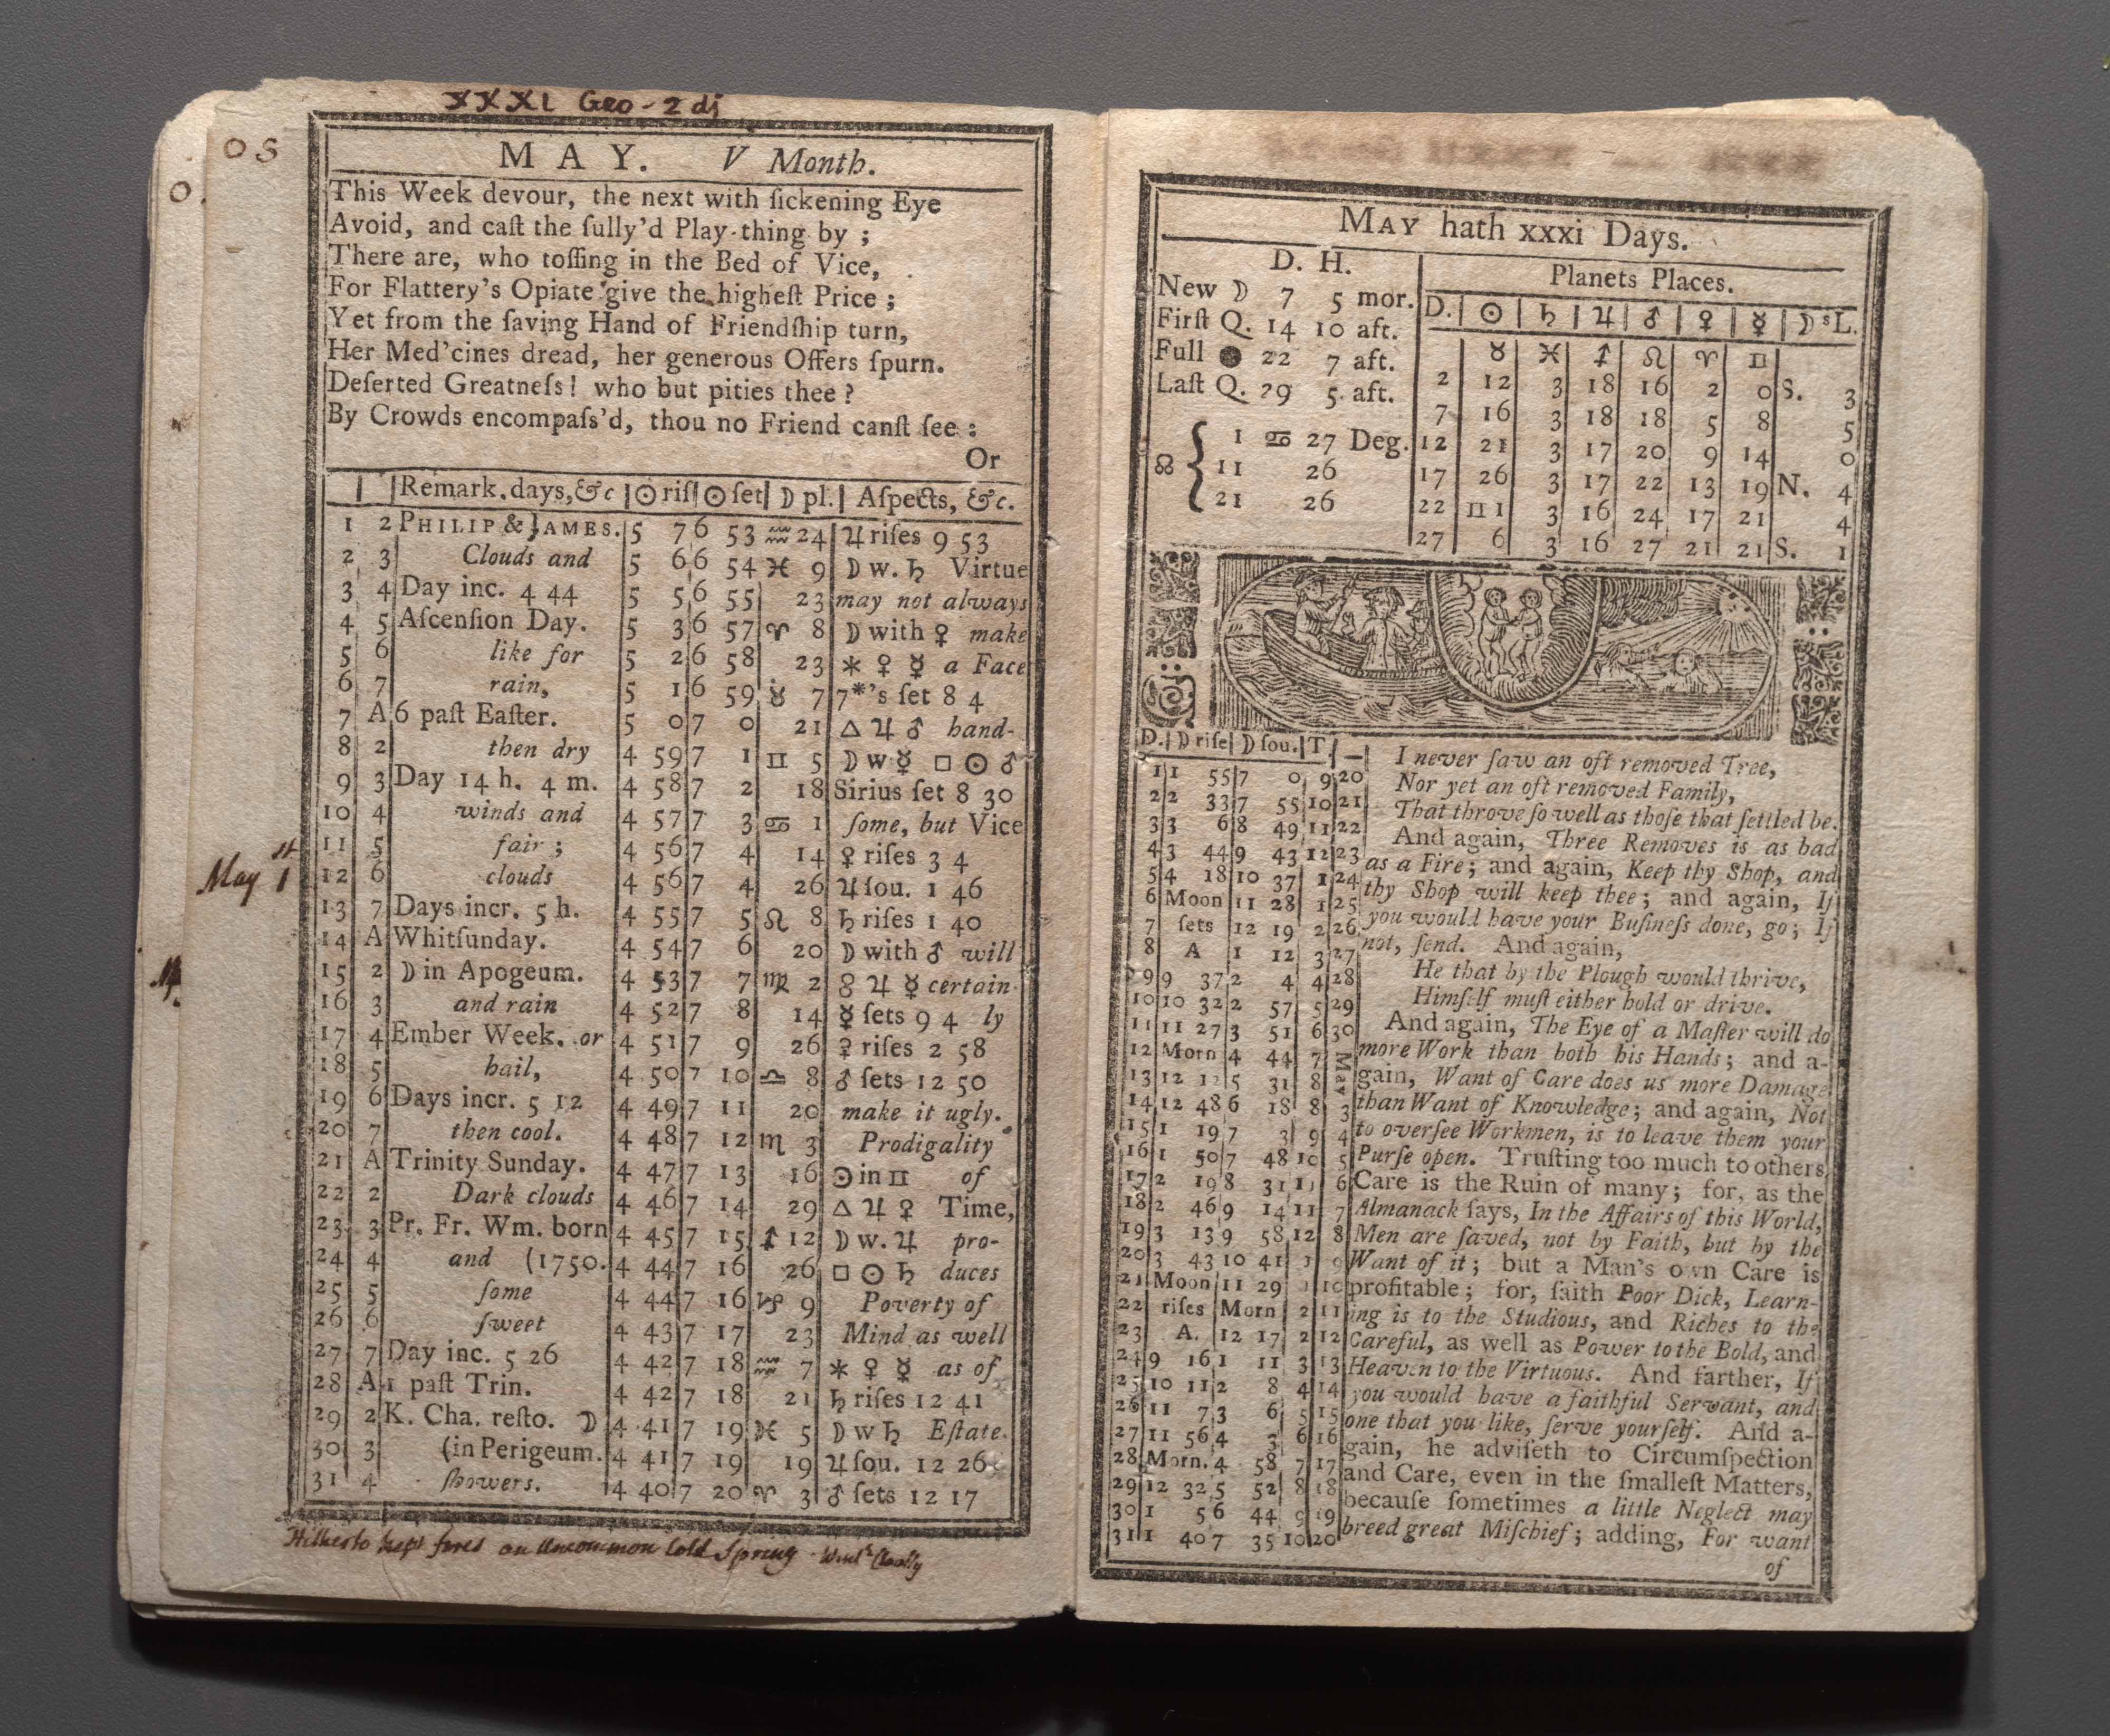 XXXI Geo - 2 di
OS
O.
MAY. V Month.
This Week devour, the next with ſickening Eye
Avoid, and caſt the ſully'd Play-thing by ;
There are, who toſſing in the Bed of Vice,
For Flattery's Opiate give the higheſt Price ;
Yet from the ſaving Hand of Friendſhip turn,
Her Med'cines dread, her generous Offers ſpurn.
Deſerted Greatneſs! who but pities thee ?
By Crowds encompaſs'd, thou no Friend canſt ſee :
Or
| | Remark. days, &c | ☉ riſ | ☉ ſet | ☽ pl. | Aſpects, &c.
1 2 PHILIP & JAMES. 5 7 6 53 ♒ 24 ♃ riſes 9 53
2 3 Clouds and 5 6 6 54 ♓ 9 ☽ w. ♄ Virtue
3 4 Day inc. 4 44 5 5 6 55 23 may not always
4 5 Aſcenſion Day. 5 3 6 57 ♈ 8 ☽ with ♀ make
5 6 like for 5 2 6 58 23 ⚹ ♀ ☿ a Face
6 7 rain, 5 1 6 59 ♉ 7 7*'s ſet 8 4
7 A 6 paſt Eaſter. 5 0 7 0 21 △ ♃ ♂ hand-
8 2 then dry 4 59 7 1 ♊ 5 ☽ w ☿ □ ☉ ♂
9 3 Day 14 h. 4 m. 4 58 7 2 18 Sirius ſet 8 30
10 4 winds and 4 57 7 3 ♋ 1 ſome, but Vice
11 5 fair ; 4 56 7 4 14 ♀ riſes 3 4
May 1st
12 6 clouds 4 56 7 4 26 ♃ ſou. 1 46
13 7 Days incr. 5 h. 4 55 7 5 ♌ 8 ♄ riſes 1 40
14 A Whitſunday. 4 54 7 6 20 ☽ with ♂ will
15 2 ☽ in Apogeum. 4 53 7 7 ♍ 2 ☍ ♃ ☿ certain-
16 3 and rain 4 52 7 8 14 ☿ ſets 9 4 ly
17 4 Ember Week. or 4 51 7 9 26 ♀ riſes 2 58
18 5 hail, 4 50 7 10 ♎ 8 ♂ ſets 12 50
19 6 Days incr. 5 12 4 49 7 11 20 make it ugly.
20 7 then cool. 4 48 7 12 ♏ 3 Prodigality
21 A Trinity Sunday. 4 47 7 13 16 ☉ in ♊ of
22 2 Dark clouds 4 46 7 14 29 △ ♃ ♀ Time,
23 3 Pr. Fr. Wm. born 4 45 7 15 ♐ 12 ☽ w. ♃ pro-
24 4 and (1750. 4 44 7 16 26 □ ☉ ♄ duces
25 5 ſome 4 44 7 16 ♑ 9 Poverty of
26 6 ſweet 4 43 7 17 23 Mind as well
27 7 Day inc. 5 26 4 42 7 18 ♒ 7 ⚹ ♀ ☿ as of
28 A 1 paſt Trin. 4 42 7 18 21 ♄ riſes 12 41
29 2 K. Cha. reſto. ☽ 4 41 7 19 ♓ 5 ☽ w ♄ Eſtate.
30 3 (in Perigeum. 4 41 7 19 19 ♃ ſou. 12 26
31 4 ſhowers. 4 40 7 20 ♈ 3 ♂ ſets 12 17
Hitherto kept fires an Uncommon Cold Spring
MAY hath xxxi Days.
D. H.
New ☽ 7 5 mor.
Firſt Q. 14 10 aft.
Full ● 22 7 aft.
Laſt Q. 29 5 aft.
☊ { 1 ♋ 27 Deg.
11 26
21 26
Planets Places.
D. | ☉ | ♄ | ♃ | ♂ | ♀ | ☿ | ☽sL.
♉ ♓ ♐ ♌ ♈ ♊
2 12 3 18 16 2 0 S. 3
7 16 3 18 18 5 8 5
12 21 3 17 20 9 14 0
17 26 3 17 22 13 19 N. 4
22 ♊ 1 3 16 24 17 21 4
27 6 3 16 27 21 21 S. 1
D. | ☽ riſe | ☽ ſou. | T. | —
1 1 55 7 0 9 20
2 2 33 7 55 10 21
3 3 6 8 49 11 22
4 3 44 9 43 12 23
5 4 18 10 37 1 24
6 Moon 11 28 1 25
7 ſets 12 19 2 26
8 A 1 12 3 27
9 9 37 2 4 4 28
10 10 32 2 57 5 29
11 11 27 3 51 6 30
12 Morn 4 44 7 May
13 12 12 5 31 8
14 12 48 6 18 8 3
15 1 19 7 3 9 4
16 1 50 7 48 10 5
17 2 19 8 31 11 6
18 2 46 9 14 11 7
19 3 13 9 58 12 8
20 3 43 10 41 1 9
21 Moon 11 29 1 10
22 riſes Morn 2 11
23 A. 12 17 2 12
24 9 16 1 11 3 13
25 10 11 2 8 4 14
26 11 7 3 6 5 15
27 11 56 4 3 6 16
28 Morn. 4 58 7 17
29 12 32 5 52 8 18
30 1 5 6 44 9 19
31 1 40 7 35 10 20
I never ſaw an oft removed Tree,
Nor yet an oft removed Family,
That throve ſo well as thoſe that ſettled be.
And again, Three Removes is as bad
as a Fire; and again, Keep thy Shop, and
thy Shop will keep thee; and again, If
you would have your Buſineſs done, go; If
not, ſend. And again,
He that by the Plough would thrive,
Himſelf muſt either hold or drive.
And again, The Eye of a Maſter will do
more Work than both his Hands; and a-
gain, Want of Care does us more Damage
than Want of Knowledge; and again, Not
to overſee Workmen, is to leave them your
Purſe open. Truſting too much to others
Care is the Ruin of many; for, as the
Almanack ſays, In the Affairs of this World,
Men are ſaved, not by Faith, but by the
Want of it; but a Man's own Care is
profitable; for, ſaith Poor Dick, Learn-
ing is to the Studious, and Riches to the
Careful, as well as Power to the Bold, and
Heaven to the Virtuous. And farther, If
you would have a faithful Servant, and
one that you like, ſerve yourſelf. And a-
gain, he adviſeth to Circumſpection
and Care, even in the ſmalleſt Matters,
becauſe ſometimes a little Neglect may
breed great Miſchief; adding, For want
of